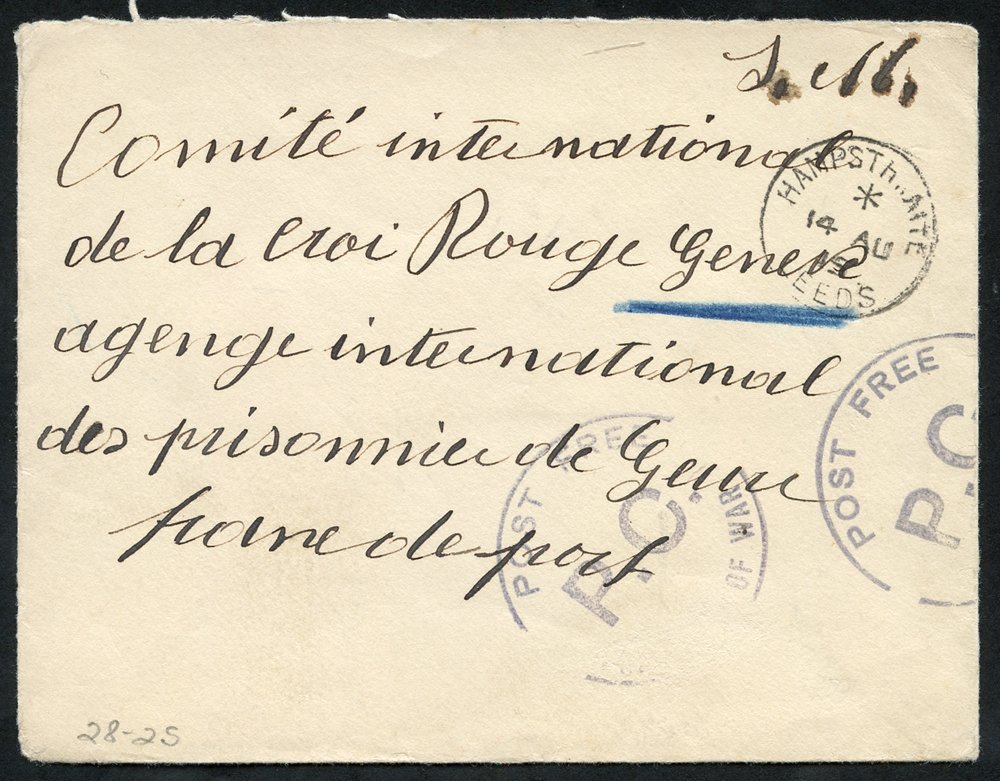 S. M.
Comité international
de la Croi Rouge Geneve
agenge international
des prisonnier de Gerre
frane de port
HAMPSTH..AITE
*
14 AU
LEEDS
POST FREE
P.C.
OF WAR
POST FREE
P.C.
28-25